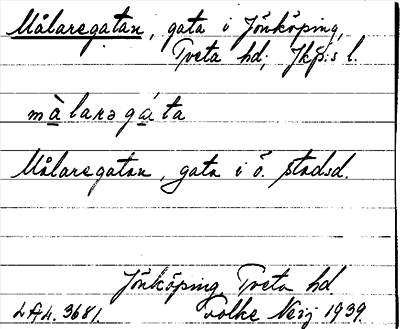 Målaregatan, gata i Jönköping,
Tveta hd; Jkp:s l.
mà̱larəgá̱ta
Målaregatan, gata i ö. stadsd.
Jönköping Tveta hd
Folke Neij 1939.